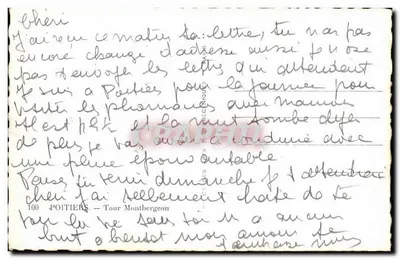 Chéri
J'ai reçu ce matin ta lettre, tu n'as pas
encore changé d'adresse aussi je n'ose
pas t'envoyer les lettres qui attendent
Je suis à Poitiers pour la journée pour
visiter les pharmacies avec maman
Il est et la nuit tombe déjà
de plus je vais avoir à conduire avec
une pluie épouvantable
tu venir dimanche je t'attendrai
chéri j'ai tellement hâte de te
voir la vie sans toi n'a aucun
100 POITIERS — Tour Montbergeon
but à bientôt mon amour je
t'embrasse